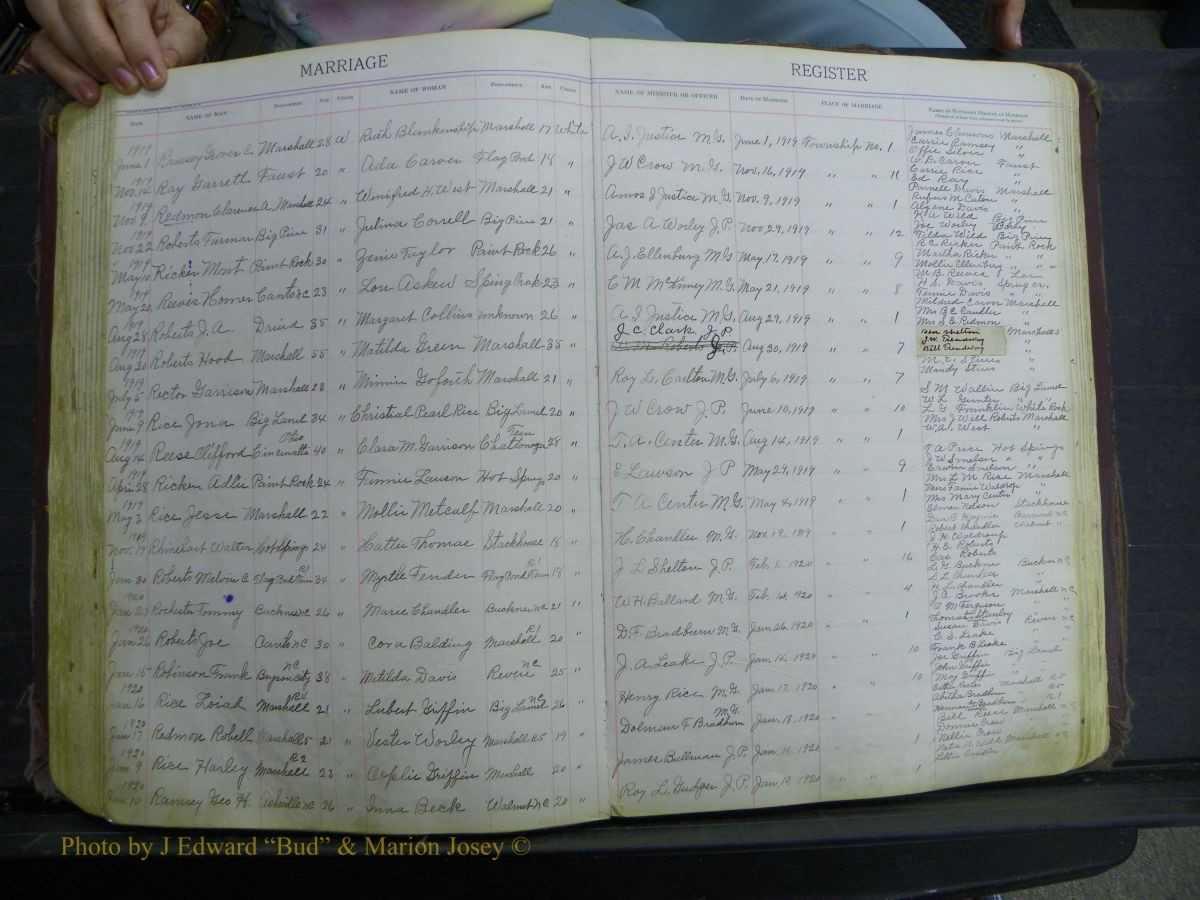 MARRIAGE REGISTER
DATE NAME OF MAN POST-OFFICE AGE COLOR NAME OF WOMAN POST-OFFICE AGE COLOR NAME OF MINISTER OR OFFICER DATE OF MARRIAGE PLACE OF MARRIAGE NAMES OF WITNESSES PRESENT AT MARRIAGE
1919 June 1 Ramsey Grover C. Marshall 28 W Ruth Blankenship Marshall 17 White A. I. Justice M.G. June 1, 1919 Township No. 1 James Clemons Marshall
Carrie Ramsey "
Offie Silver "
1919 Nov. 14 Ray Garrett Faust 20 " Ada Carver Flag Pond 18 " J W Crow M.G. Nov. 16, 1919 " " 11 W. B. Carver Faust
Carrie Rice "
Ed Ray "
1919 Nov 9 Redmon Clarence A. Marshall 24 " Winifred H. West Marshall 21 " Amos I Justice M.G. Nov. 9, 1919 " " 1 Parnell Davis Marshall
Rufus M. Caton "
Algene Davis "
1919 Nov 22 Roberts Furman Big Pine 31 " Julina Correll Big Pine 21 " Jas A Worley J.P. Nov. 29, 1919 " " 12 K A Wild Big Pine
Joe Worley
Tilda Wild Big Pine
1919 May 10 Ricker Mont Paint Rock 30 " Zenie Taylor Paint Rock 26 " A. J. Ellenburg M.G. May 17, 1919 " " 9 R C Ricker Paint Rock
Martha Ricker "
Mollie Ellenburg " "
1919 May 20, Reeves Homer Canto NC 23 " Lou Askew Spring Creek 23 " C M McKinney M.G. May 21, 1919 " " 8 M. B. Reeves
H. S. Davis Spring Cr.
Fennie Davis "
1919 Aug 28 Roberts J. A. Druid 35 " Margaret Collins unknown 26 " A I Justice M.G. Aug 29, 1919 " " 1 Mildred Carver Marshall
Mrs B C Candler "
Mrs S. E. Redmon "
1919 Aug 30 Roberts Hood Marshall 55 " Matilda Green Marshall 35 " J. C. Clark, J.P. Aug 30, 1919 " " 7 Ben Shelton Marshall
J. W. Treadway "
Bill Treadway "
1919 July 5 Rector Garrison Marshall 23 " Minnie Goforth Marshall 21 " Roy L. Carlton M.G. July 6, 1919 " " 7 Mandy Stines "
1919 June 9 Rice Jona Big Laurel 34 " Christial Pearl Rice Big Laurel 20 " J W Crow J.P. June 10, 1919 " " 10 S M Wallin Big Laurel
W. L. Gunter "
L. G. Franklin White Rock
1919 Aug 14 Reese Clifford Cincinnatti Ohio 40 " Clara M. Garrison Chattanooga Tenn 28 " T. A. Center M.G. Aug 14, 1919 " " 1 Mrs J Will Roberts Marshall
W. A. West "
1919 Apri 28 Ricker Adlie Paint Rock 24 " Finnie Lawson Hot Springs 20 " E Lawson J P May 29, 1919 " " 9 T A Price Hot Springs
J W Smelser " "
Ervin Smelson " "
1919 May 3 Rice Jesse Marshall 22 " Mollie Metcalf Marshall 20 " T A Center M.G. May 4, 1919 " " 1 Mrs L M Rice Marshall
Miss Fannie Waldrop "
Mrs Mary Center "
1919 Nov. 19 Rhinehart Walter Hot Springs 24 " Hattie Thomas Stackhouse 18 " H. Chandler M.G. Nov. 19, 1919 " " 1 Elmer Nelson Stackhouse
Dan T. Haynie Barnard NC
Robert Chandler Walnut "
Jan 30 Roberts Melvin C. Flag Pond Tenn R1 34 " Myrtle Fender Flag Pond Tenn R1 18 " J L Shelton J.P. Feb. 1, 1920 " " 16 J. H. Waldroup
H. E. Roberts
Cas Roberts
1920 Jan 27 Rochester Tommy Buckner NC 26 " Marie Chandler Buckner NC 21 " W. H. Ballard M.G. Feb. 1st, 1920 " " 4 L. G. Buckner Buckner NC
L. L. Chandler "
H. L. Chandler "
1920 Jan 26 Roberts Joe Canto NC 30 " Cora Balding Marshall R1 20 " D. F. Bradburn M.G. Jan. 26, 1920 " " 1 J. C. Brooks Marshall NC
O. M. Ferguson "
Thomas Stanley "
Jan 15 Robinson Frank Bryson City NC 38 " Matilda Davis Revere NC 25 " J. A. Leake J.P. Jan. 15, 1920 " " 10 Susan Davis Revere NC
C. S. Leake "
Frank B. Leake "
1920 Jan 16 Rice Loiad Marshall 21 " Lubert Griffin Big Laurel NC 26 " Henry Rice M.G. Jan. 17, 1920 " " 10 Joe Griffin Big Laurel
John Griffin "
May Griffin "
1920 Jan 17 Redmon Robert Marshall 5 21 " Vester Worley Marshall R5 19 " Dolman F. Bradburn M.G. Jan. 18, 1920 " " 1 Marshall R5
Abitha Bradburn " R5
Herman Bradburn " R1
1920 Jan 9 Rice Harley Marshall R2 23 " Coplie Griffin Marshall 20 " James Bullman J.P. Jan. 11 1920 " " 1 Bill Rice Marshall NC
Donnie Crow "
Nellie Crow "
1920 Jan 10 Ramsey Geo H. Asheville NC 26 " Inna Beck Walnut NC 20 " Roy L. Gudger J.P. Jan. 10, 1920 " " 1 Neta H. Wild Marshall NC
Lillie Candler "
Photo by J Edward “Bud” & Marion Josey ©